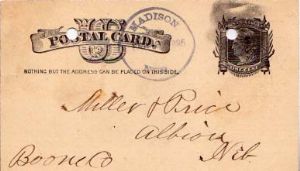 POSTAL CARD.
MADISON
NOTHING BUT THE ADDRESS CAN BE PLACED ON THIS SIDE.
Miller & Price
Albion
Boone Co Neb